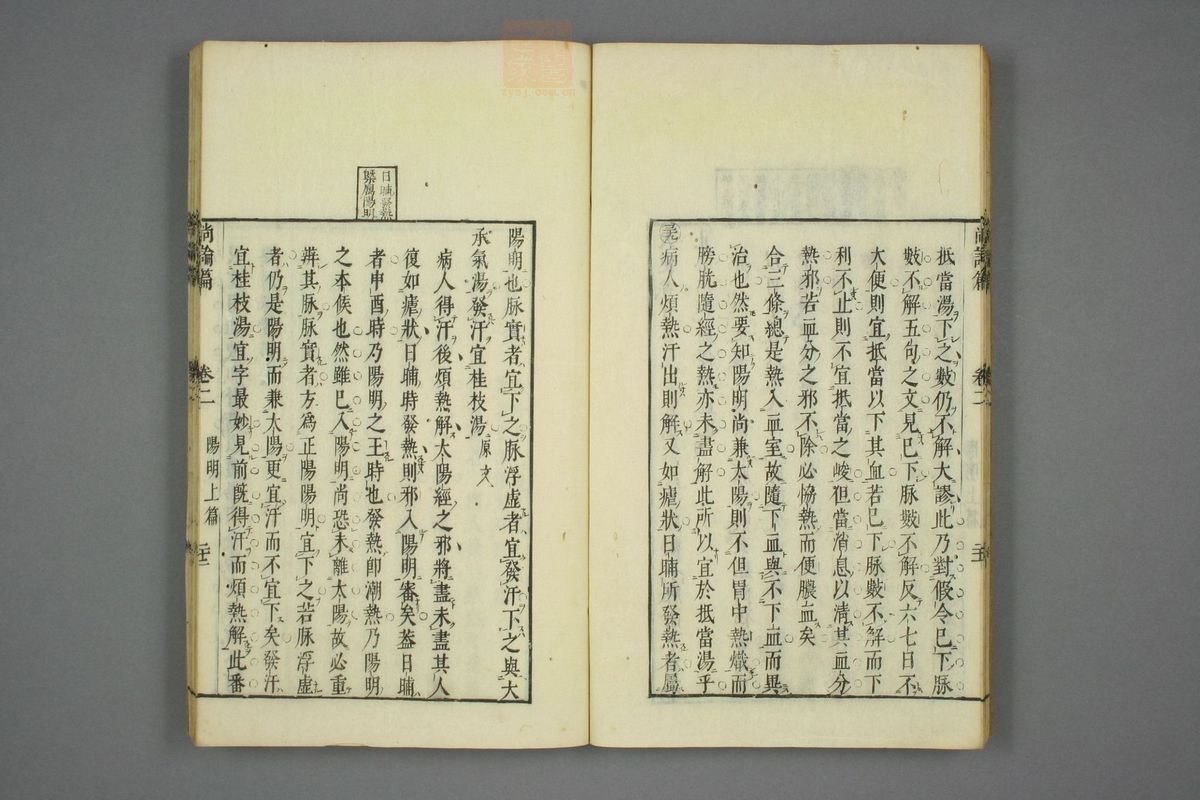 抵當湯下之數仍不解大謬此乃對假令已下脈
數不解五句之文見已下脈數不解反六七日不
大便則宜抵當以下其血若已下脈數不解而下
利不止則不宜抵當之峻但當消息以清其血分
熱邪若血分之邪不除必恊熱而便膿血矣
合三條總是熱入血室故隨下血與不下血而異
治也然要知陽明尚兼太陽則不但胃中熱熾而
膀胱隨經之熱亦未盡解此所以宜於抵當湯乎
病人煩熱汗出則解又如瘧狀日晡所發熱者屬
尚論篇
卷二
陽明也脈實者宜下之脈浮虛者宜發汗下之與大
承氣湯發汗宜桂枝湯原文
病人得汗後煩熱解太陽經之邪將盡未盡其人
復如瘧狀日晡時發熱則邪入陽明審矣葢日晡
者申酉時乃陽明之王時也發熱卽潮熱乃陽明
之本候也然雖已入陽明尚恐未離太陽故必重
辨其脈脈實者方爲正陽陽明宜下之若脈浮虛
者仍是陽明而兼太陽更宜汗而不宜下矣發汗
宜桂枝湯宜字最妙見前旣得汗而煩熱解此番
日晡發熱
尚論篇
卷二
陽明上篇
zysj.com.cn